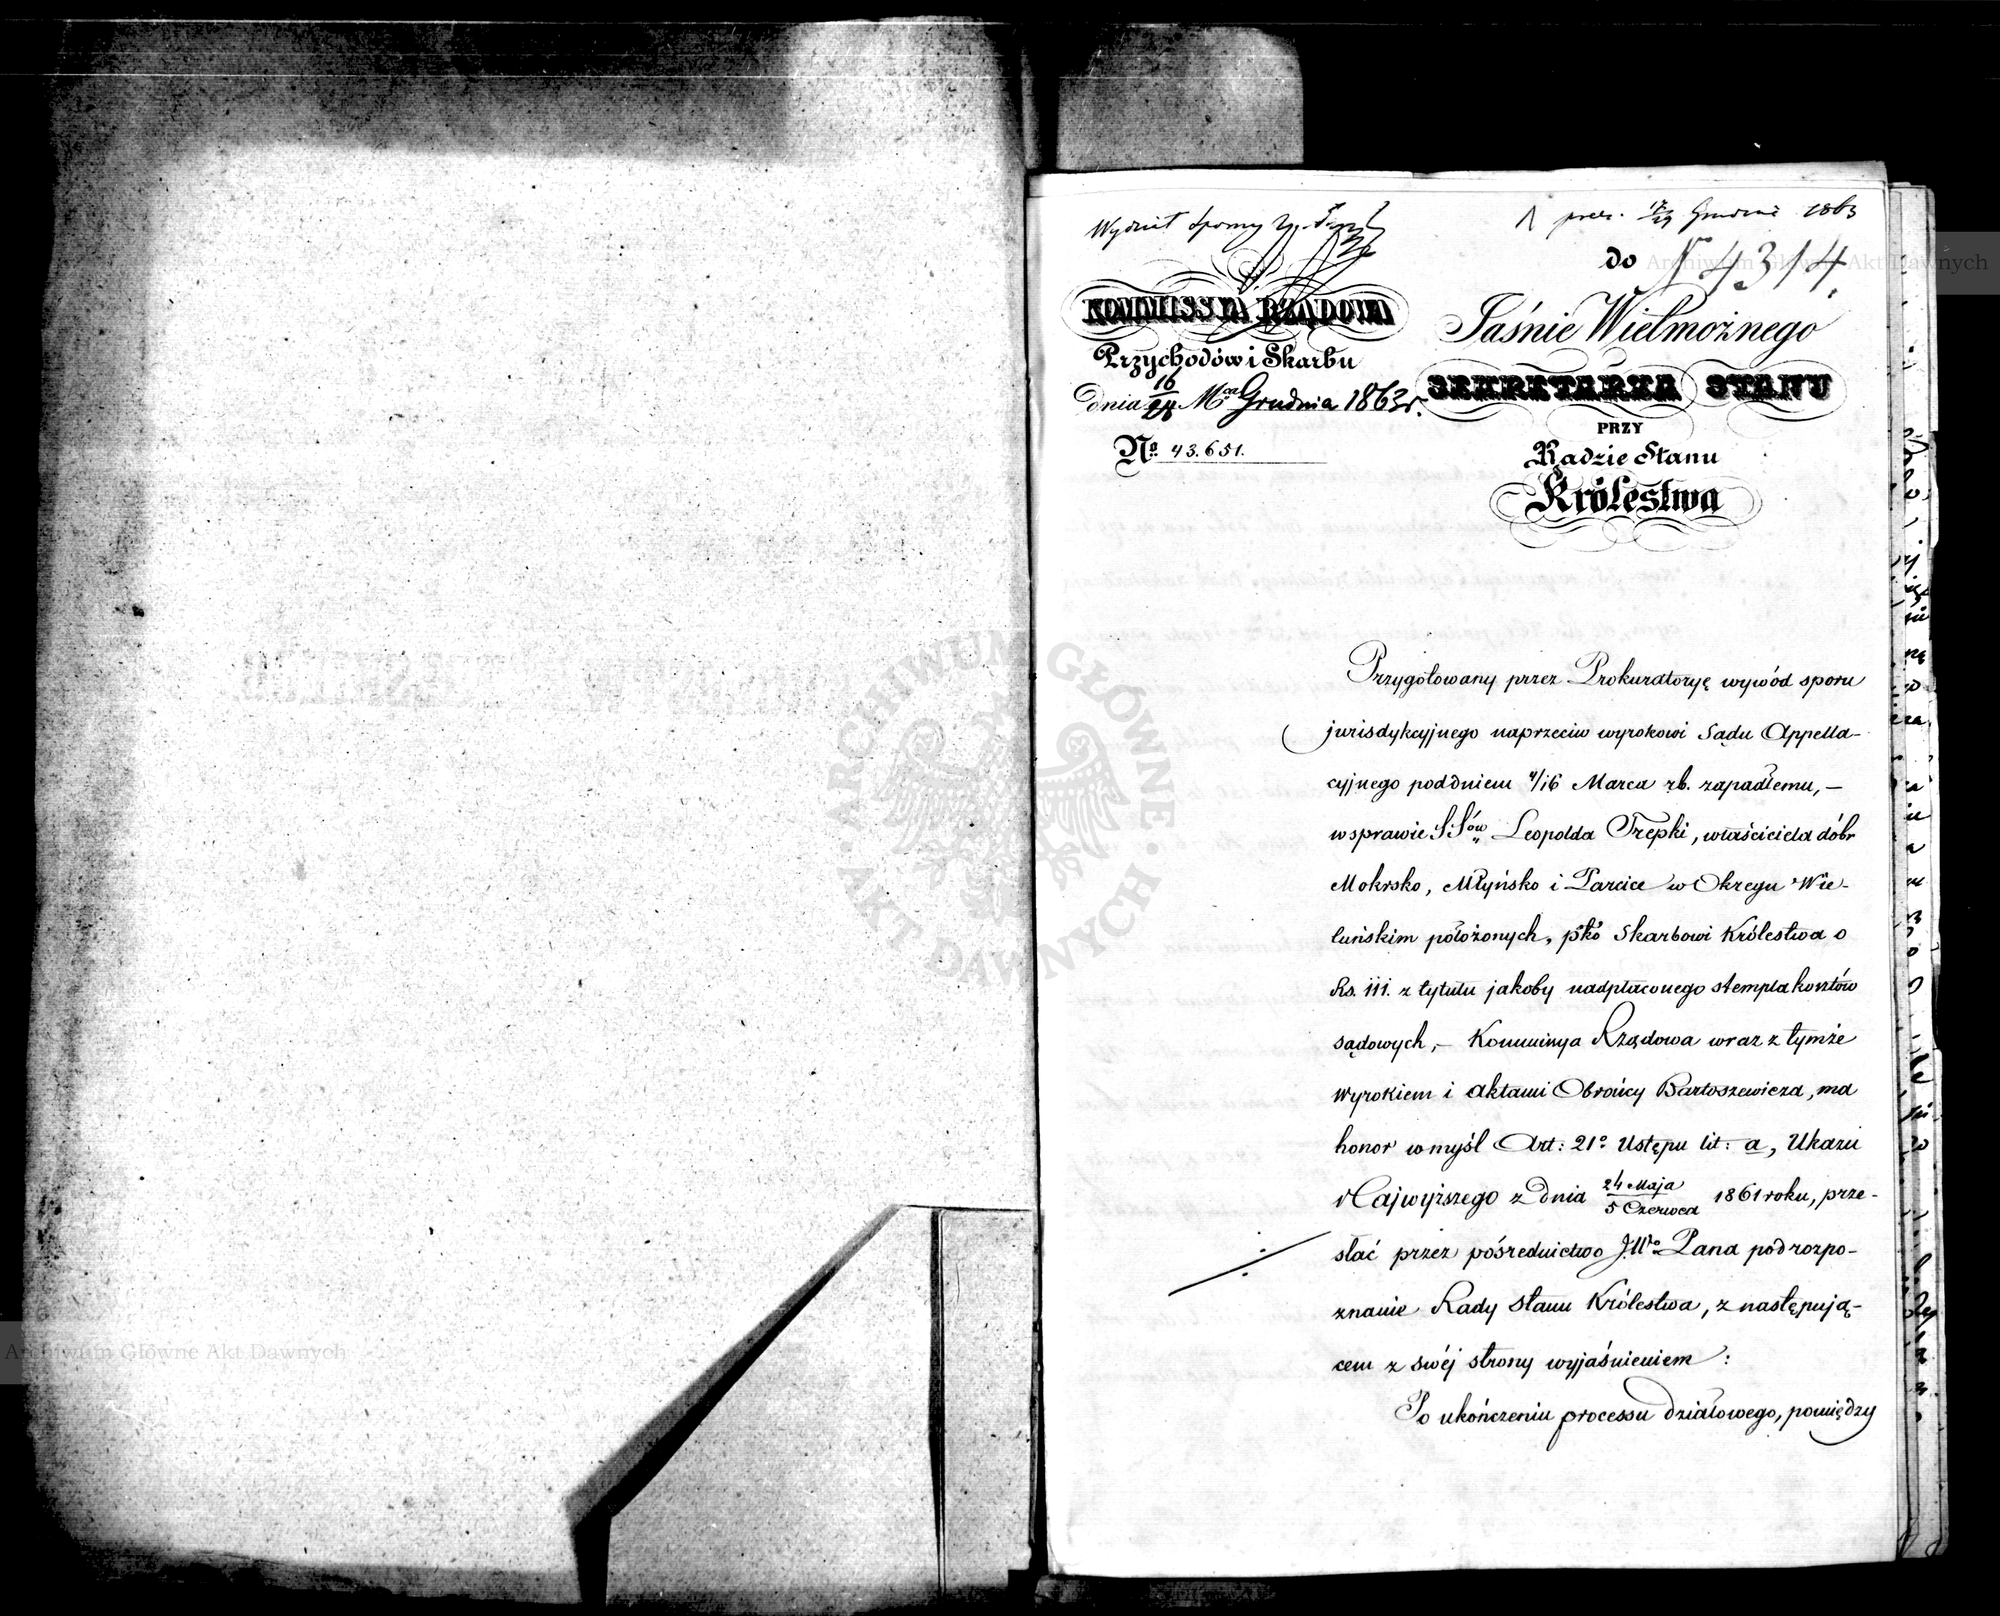 Wydział Sporny
prez. 17/29 Grudnia 1863
do
4314
KOMMISSYA RZĄDOWA
Przychodów i Skarbu
dnia 16/28 Mca Grudnia 1863r.
No 43.651.
Jaśnie Wielmożnego
SEKRETARZA STANU
PRZY
Radzie Stanu
Królestwa
Przygotowany przez Prokuratoryę wywód sporu
jurisdykcyjnego naprzeciw wyrokowi Sądu Appella-
cyjnego pod dniem 4/16 Marca rb. zapadłemu, —
w sprawie SSów Leopolda Trepki, właściciela dóbr
Mokrsko, Młyńsko i Parcice w Okręgu Wie-
luńskim położonych, pko Skarbowi Królestwa o
Rs. 111. z tytułu jakoby nadpłaconego stempla kosztów
sądowych, — Kommissya Rządowa wraz z tymże
wyrokiem i aktami Obrońcy Bartoszewicza, ma
honor w myśl Art: 21o Ustępu lit: a, Ukazu
Najwyższego z dnia 24 Maja/5 Czerwca 1861 roku, prze-
słać przez pośrednictwo JWo Pana pod rozpo-
znanie Rady Stanu Królestwa, z następują-
cem z swéj strony wyjaśnieniem:
Po ukończeniu processu działowego, pomiędzy
ARCHIWUM GŁÓWNE AKT DAWNYCH
Archiwum Główne Akt Dawnych
Archiwum Główne Akt Dawnych